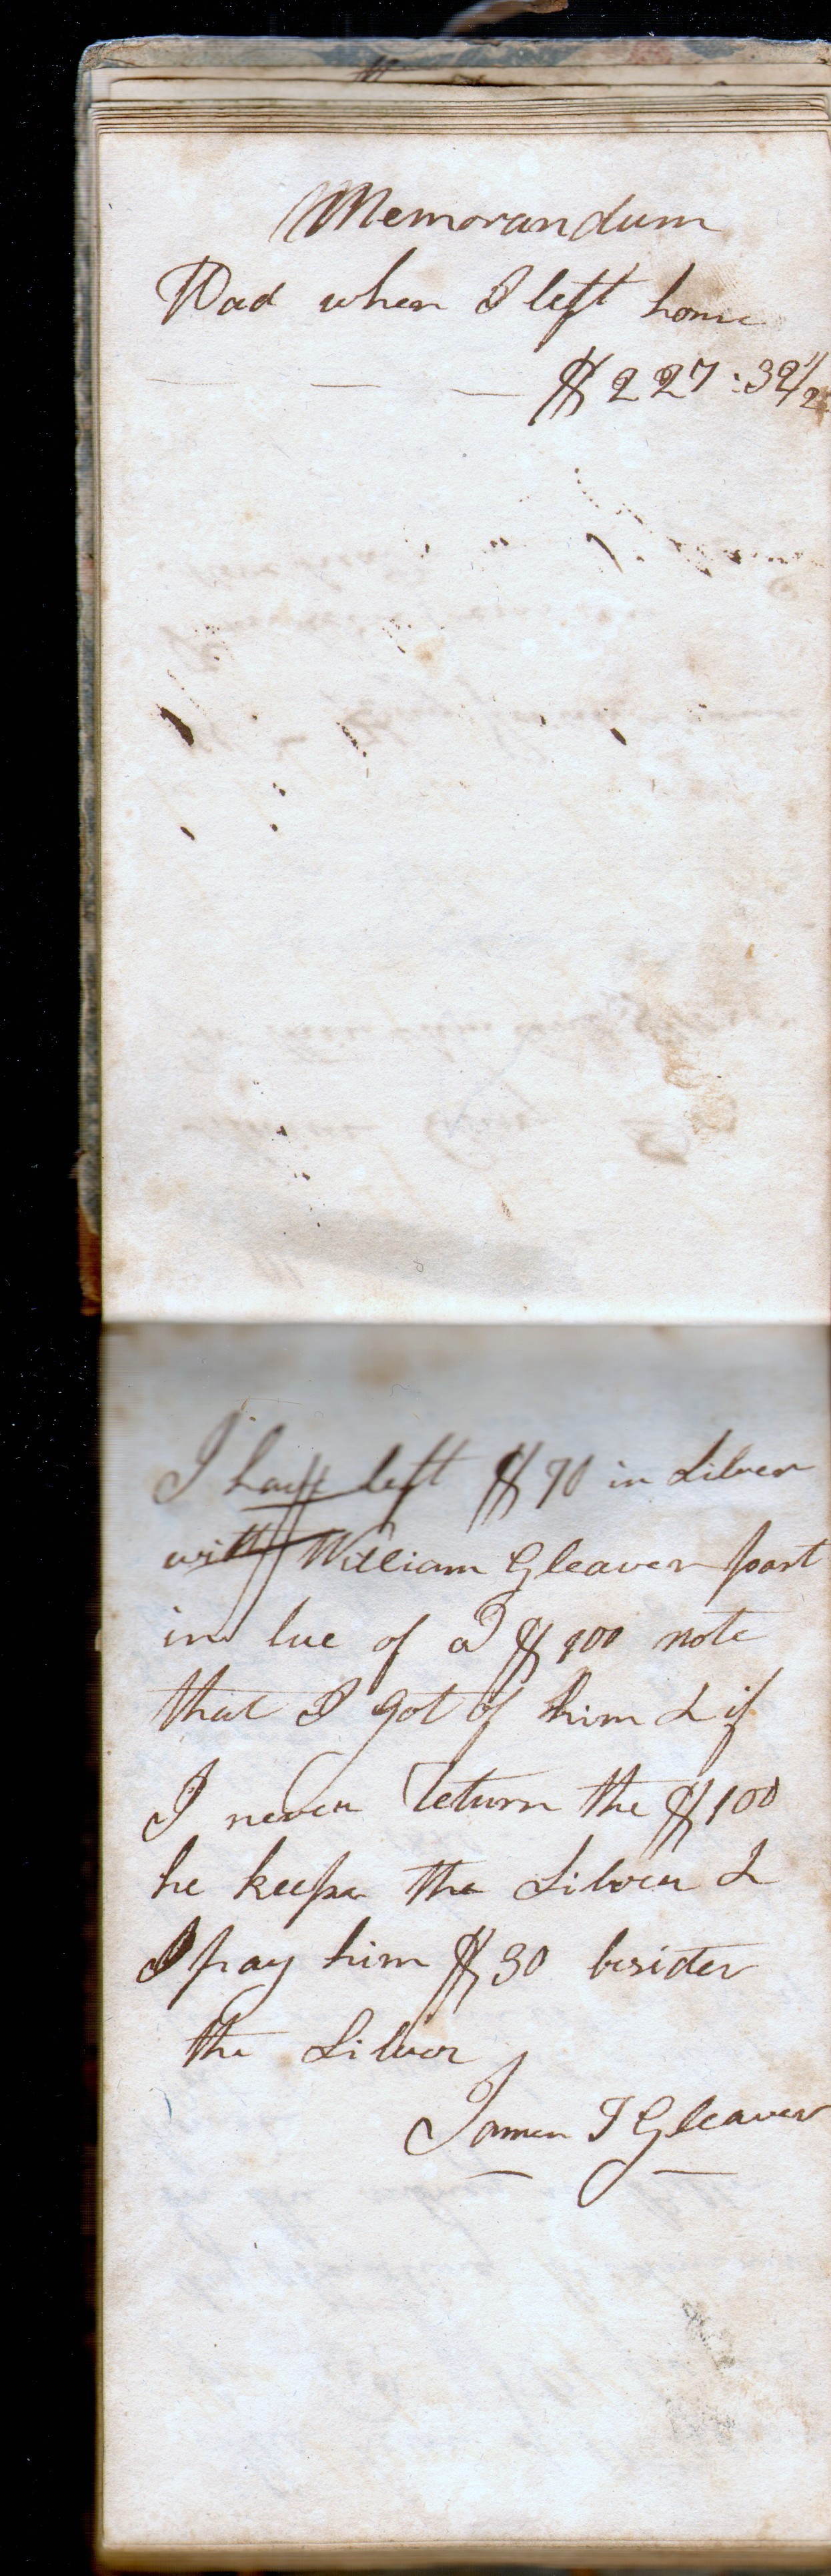 Memorandum
Had when I left home
$227:32 1/2
I have left $70 in Silver
with William Gleaver part
in lue of a $100 note
that I got of him & if
I never return the $100
he keeps the Silver &
I pay him $30 besides
the Silver
James T Gleaver